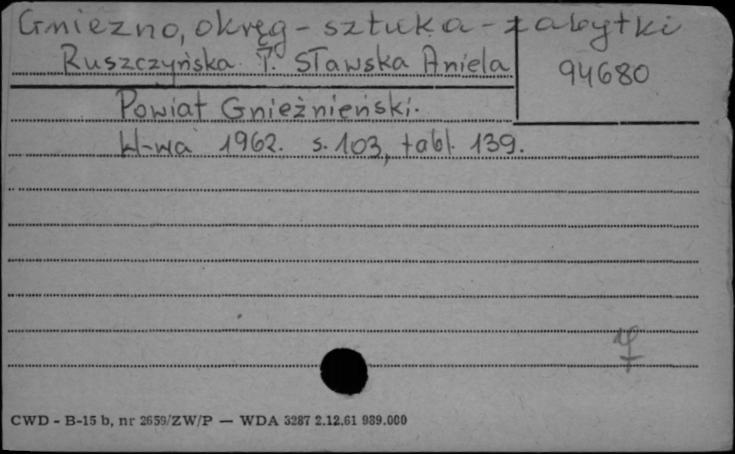 Gniezno, okręg - sztuka - zabytki
Ruszczyńska T. Sławska Aniela
94680
Powiat Gnieźnieński.
W-wa 1962. s. 103, tabl. 139.
CWD - B-15 b, nr 2659/ZW/P — WDA 3287 2.12.61 989.000